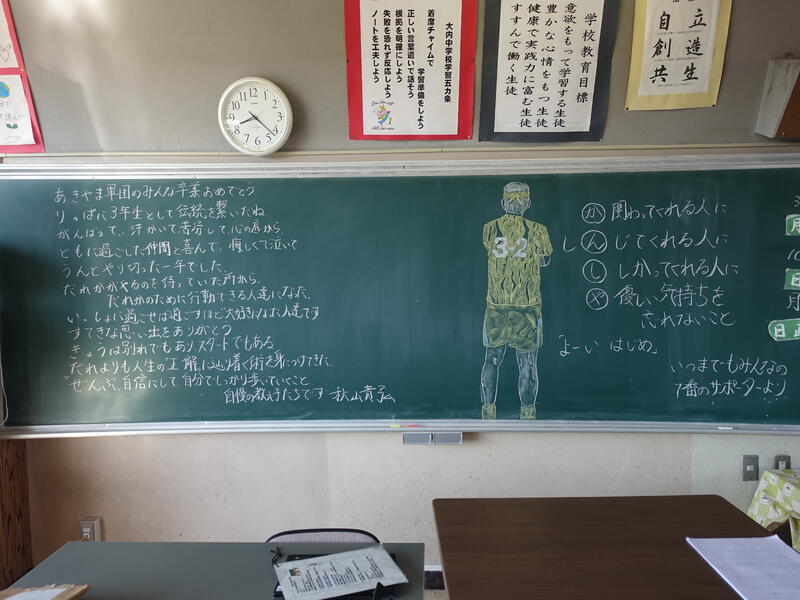 自立
創造
共生
学校教育目標
意欲をもって学習する生徒
豊かな心情をもつ生徒
健康で実践力に富む生徒
すすんで働く生徒
大内中学校学習五カ条
着席チャイムで
学習準備をしよう
正しい言葉遣いで話そう
根拠を明確にしよう
失敗を恐れず反応しよう
ノートを工夫しよう
あきやま軍団のみんな卒業おめでとう
りっぱに3年生として伝統を繋いだね
がんばって、汗かいて苦労して、心の底から
ともに過ごした仲間と喜んで、悔しくて泣いて
うんとやり切った一年でした。
だれかがやるのを待っていた前から、
だれかのために行動できる人達になった。
いっしょに過ごせば過ごすほど大好きになった人達です
すてきな思い出をありがとう
きょうは別れでもありスタートでもある。
だれよりも人生の正解に辿り着く術を身につけてきた。
"ぜんぶ"自信にして、自分でしっかり歩いていくこと
自慢の教え子たちです 秋山貴弘
32
か 関わってくれる人に
しんじてくれる人に
し しかってくれる人に
や 優しい気持ちを
忘れないこと
「よーい はじめ」
いつまでもみんなの
1番のサポーターより